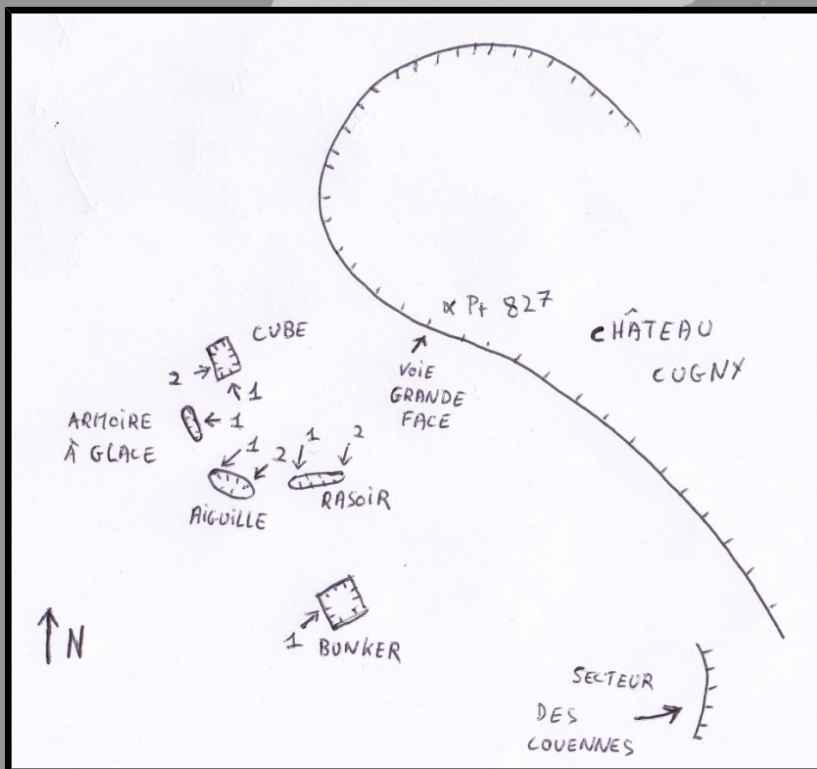 x Pt 827
CHÂTEAU
CUGNY
CUBE
2
1
VOIE
GRANDE
FACE
ARMOIRE
À GLACE
1
1
2
1
2
AIGUILLE
RASOIR
N
1
BUNKER
SECTEUR
DES
COUENNES